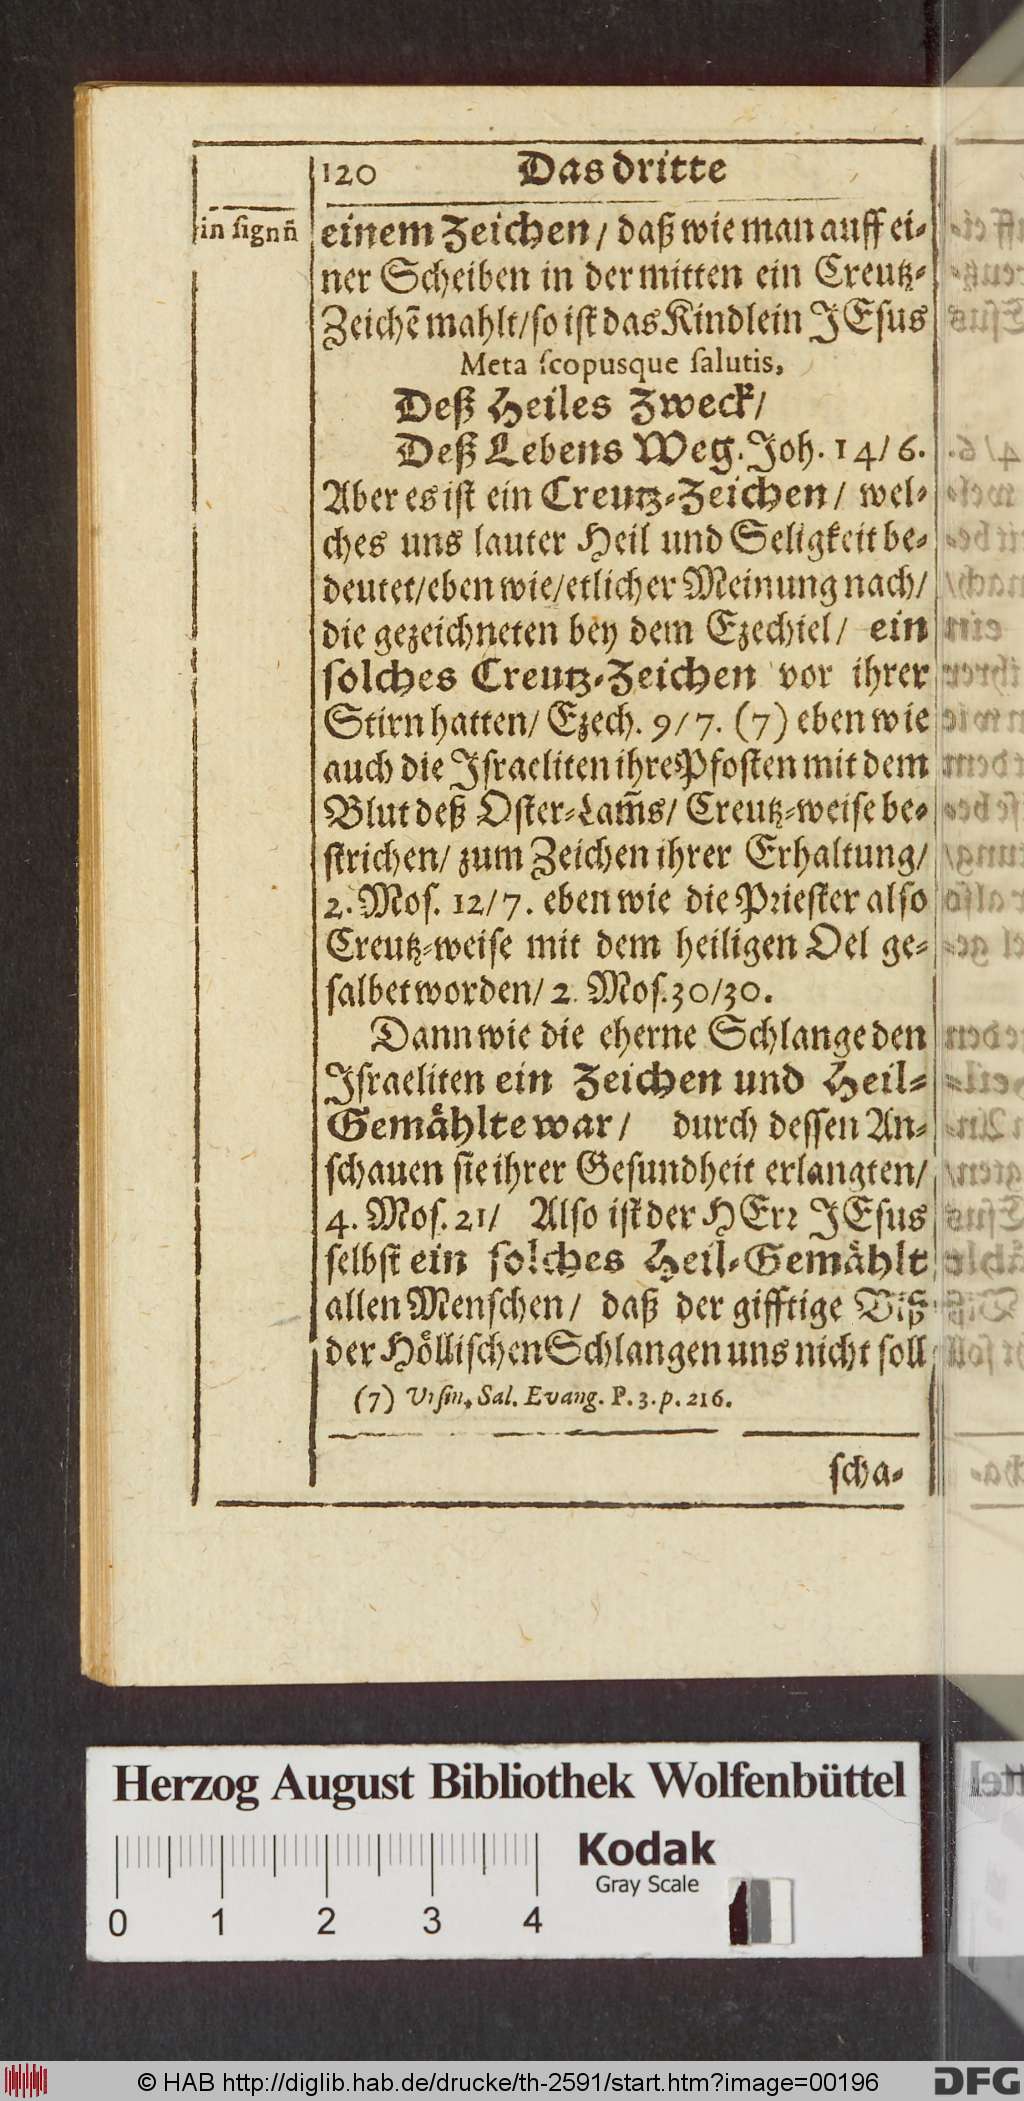 120 Das dritte
in signū
einem Zeichen / daß wie man auff ei-
ner Scheiben in der mitten ein Creutz-
Zeichē mahlt / so ist das Kindlein JEsus
Meta scopusque salutis,
Deß Heiles Zweck /
Deß Lebens Weg. Joh. 14 / 6.
Aber es ist ein Creutz-Zeichen / wel-
ches uns lauter Heil und Seligkeit be-
deutet / eben wie / etlicher Meinung nach /
die gezeichneten bey dem Ezechiel / ein
solches Creutz-Zeichen vor ihrer
Stirn hatten / Ezech. 9 / 7. (7) eben wie
auch die Israeliten ihre Pfosten mit dem
Blut deß Oster-Lam̄s / Creutz-weise be-
strichen / zum Zeichen ihrer Erhaltung /
2. Mos. 12 / 7. eben wie die Priester also
Creutz-weise mit dem heiligen Oel ge-
salbet worden / 2. Mos. 30 / 30.
Dann wie die eherne Schlange den
Israeliten ein Zeichen und Heil-
Gemählte war / durch dessen An-
schauen sie ihrer Gesundheit erlangten /
4. Mos. 21 / Also ist der HErr JEsus
selbst ein solches Heil-Gemählt
allen Menschen / daß der gifftige Biß
der Höllischen Schlangen uns nicht soll
(7) Ursin. Sal. Evang. P. 3. p. 216.
scha-
Herzog August Bibliothek Wolfenbüttel
Kodak
Gray Scale
0 1 2 3 4
© HAB http://diglib.hab.de/drucke/th-2591/start.htm?image=00196
DFG